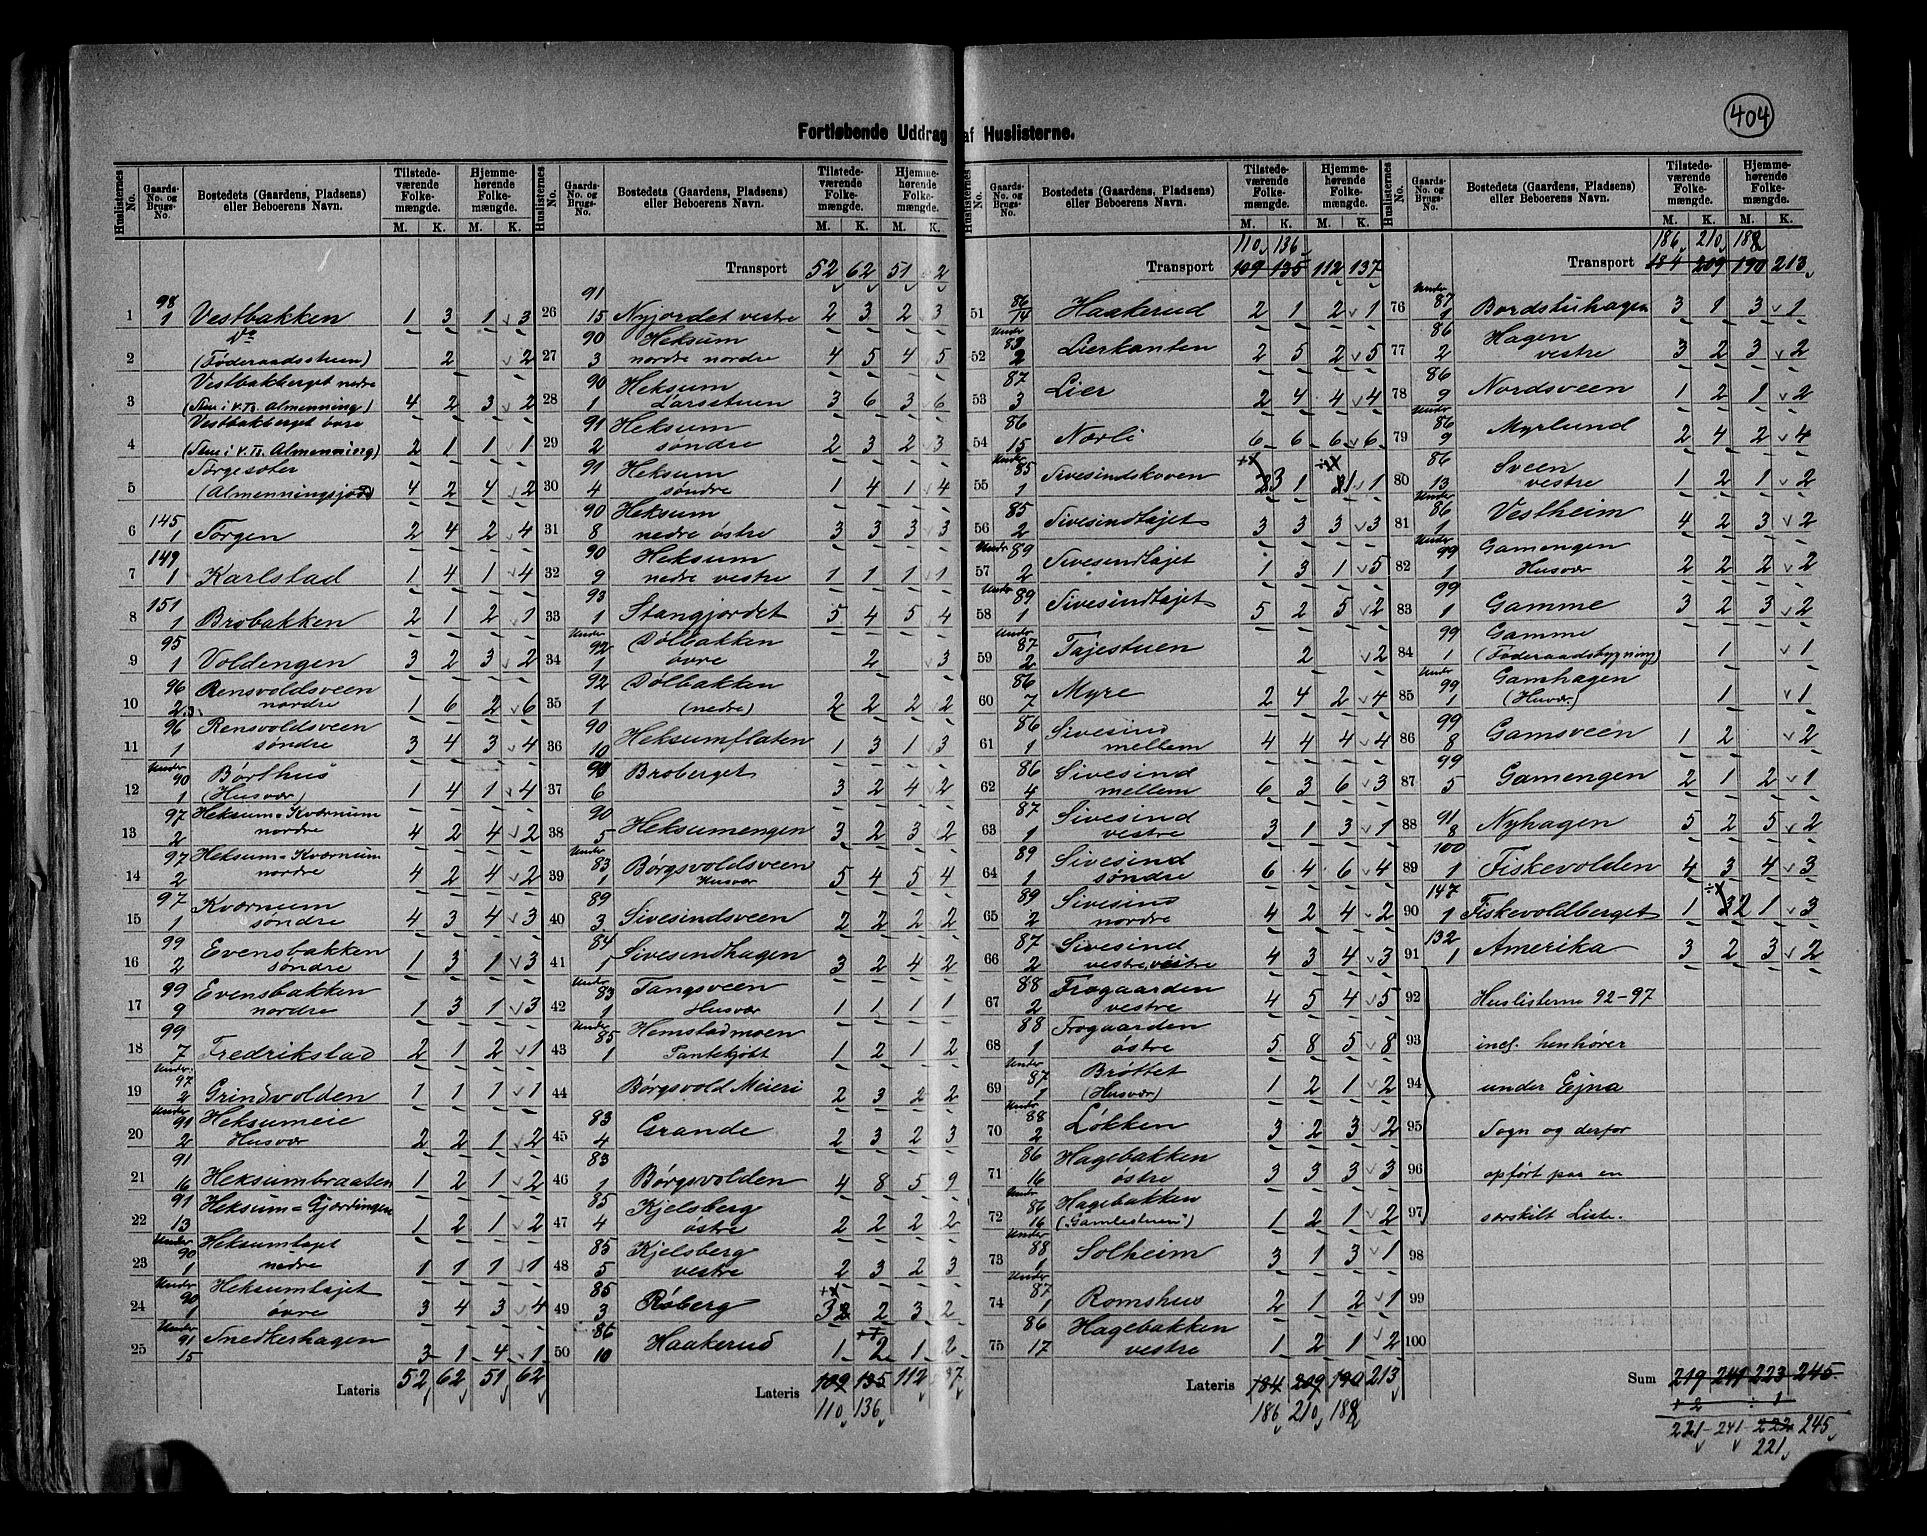 404
Fortløbende Uddrag af Huslisterne.
Huslisternes No. Gaards-No. og Brugs-No. Bostedets (Gaardens, Pladsens) eller Beboerens Navn. Tilstedeværende Folkemængde. M. K. Hjemmehørende Folkemængde. M. K.
1 98/1 Vestbakken 1 3 1 3
2 Do (Føderaadsstuen) 2 2
3 Vestbakberget nedre (Stue i V.T. Almenning) 4 2 3 2
4 Vestbakberget øvre (Stue i V.T. Almenning) 2 1 1 1
5 Tørgesæter (Almenningsjord) 4 2 4 2
6 145/1 Tørgen 2 4 2 4
7 149/1 Karlstad 1 4 1 4
8 151/1 Brobakken 2 1 2 1
9 95/1 Voldengen 3 2 3 2
10 96/2,3 Rensvoldsveen nordre 1 6 2 6
11 96/1 Rensvoldsveen søndre 3 4 3 4
12 Under 90/1 Børlhus (Husvær) 1 4 1 4
13 97/2 Heksum=Kværnum nordre 4 2 4 2
14 97/2 Heksum=Kværnum nordre 4 2 4 2
15 97/1 Kværnum søndre 4 3 4 3
16 99/2 Evensbakken søndre 1 3 1 3
17 99/9 Evensbakken nordre 1 3 1 3
18 99/7 Fredrikstad 2 1 2 1
19 Under 97/2 Grindvolden 1 1 1 1
20 Under 91/2 Heksumeie Husvær 2 2 1 2
21 91/16 Heksumbraaten 1 2 1 2
22 91/13 Heksum=Gjørdingen 1 2 1 2
23 Under 90/1 Heksumtajet nedre 1 1 1 1
24 Under 90/1 Heksumtajet øvre 3 4 3 4
25 Under 91/15 Snedkerhagen 3 1 4 1
Lateris 52 62 51 62
Huslisternes No. Gaards-No. og Brugs-No. Bostedets (Gaardens, Pladsens) eller Beboerens Navn. Tilstedeværende Folkemængde. M. K. Hjemmehørende Folkemængde. M. K.
Transport 52 62 51 2
26 91/15 Nyjordet vestre 2 3 2 3
27 90/3 Heksum nordre nordre 4 5 4 5
28 90/1 Heksum Larsstuen 3 6 3 6
29 91/2 Heksum søndre 2 3 2 3
30 91/4 Heksum søndre 1 4 1 4
31 90/8 Heksum nedre østre 3 3 3 3
32 90/9 Heksum nedre vestre 1 1 1 1
33 93/1 Stangjordet 5 4 5 4
34 Under 92/1 Dølbakken øvre 2 3
35 92/1 Dølbakken (nedre) 2 2 2 2
36 90/10 Heksumflaten 1 3 1 3
37 90/6 Broberget 3 2 4 2
38 90/5 Heksumengen 3 2 3 2
39 Under 83/1 Børgsvoldsveen Husvær 5 4 5 4
40 89/3 Sivesindsveen 2 2 2 2
41 84/1 Sivesindhagen 3 2 4 2
42 Under 83/1 Tangsveen Husvær 1 1 1 1
43 Under 85/1 Hemstadmoen 1 2 1 2
44 Børgsvold Meieri 2 3 2 2
45 83/4 Grande 2 3 2 3
46 83/1 Børgsvolden 4 8 5 9
47 85/4 Kjelsberg østre 2 2 2 2
48 85/5 Kjelsberg vestre 2 3 2 3
49 85/3 Røberg 3 2 2 3 2
50 86/10 Haakerud 1 2 1 2
Lateris 109 135 112 37
110 136
Huslisternes No. Gaards-No. og Brugs-No. Bostedets (Gaardens, Pladsens) eller Beboerens Navn. Tilstedeværende Folkemængde. M. K. Hjemmehørende Folkemængde. M. K.
110 136
Transport 109 135 112 137
51 86/14 Haakerud 2 1 2 1
52 Under 83/2 Lierkanten 2 5 2 5
53 87/3 Lier 2 4 4 4
54 86/15 Nørli 6 6 6 6
55 Under 85/1 Sivesindskoven 2 3 1 1 1
56 85/2 Sivesindtajet 3 3 3 3
57 Under 89/2 Sivesindtajet 1 3 1 5
58 Under 89/1 Sivesindtajet 5 2 5 2
59 Under 87/2 Tajestuen 2 2
60 86/7 Myre 2 4 2 4
61 86/1 Sivesind mellem 4 4 4 4
62 86/4 Sivesind mellem 6 3 6 3
63 87/1 Sivesind vestre 3 1 3 1
64 89/1 Sivesind søndre 6 4 6 4
65 89/2 Sivesind nordre 4 2 4 2
66 87/2 Sivesind vestre vestre 4 3 4 3
67 88/2 Frøgaarden vestre 4 5 4 5
68 88/1 Frøgaarden østre 5 8 5 8
69 Under 87/1 Brøttet (Husvær) 1 2 1 2
70 Under 88/2 Løkken 3 2 3 2
71 86/16 Hagebakken østre 3 3 3 3
72 Under 86/16 Hagebakken ("Gamlestuen") 1 2 1 2
73 Under 88/1 Solheim 3 1 3 1
74 Under 87/1 Romshus 2 1 2 1
75 86/17 Hagebakken vestre 1 2 1 2
Lateris 184 209 190 213
186 210 188
Huslisternes No. Gaards-No. og Brugs-No. Bostedets (Gaardens, Pladsens) eller Beboerens Navn. Tilstedeværende Folkemængde. M. K. Hjemmehørende Folkemængde. M. K.
186 210 188
Transport 184 209 190 213
76 Under 87/1 Bordstuhagen 3 1 3 1
77 86/2 Hagen vestre 3 2 3 2
78 86/9 Nordsveen 1 2 1 2
79 Under 86/9 Myrlund 2 4 2 4
80 86/13 Sveen vestre 1 2 1 2
81 Under 86/1 Vestheim 4 2 3 2
82 Under 99/1 Gamengen Husvær 2 2 2 2
83 99/1 Gamme 3 2 3 2
84 99/1 Gamme (Føderaadsbygning) 1 1
85 Under 99/1 Gamhagen (Husvær) 1 1
86 99/8 Gamsveen 1 2 2
87 99/5 Gamengen 2 1 2 1
88 91/8 Nyhagen 5 2 5 2
89 100/1 Fiskevolden 4 3 4 3
90 147/1 Fiskevoldberget 1 3 2 1 3
91 132/1 Amerika 3 2 3 2
92 Huslisterne 92-97
93 incl. henhører
94 under Ejna
95 Sogn og derfor
96 opført paa en
97 særskilt Liste.
98
99
100
Sum 219 241 223 245
+2 ÷ 1
221 241 222 245
221